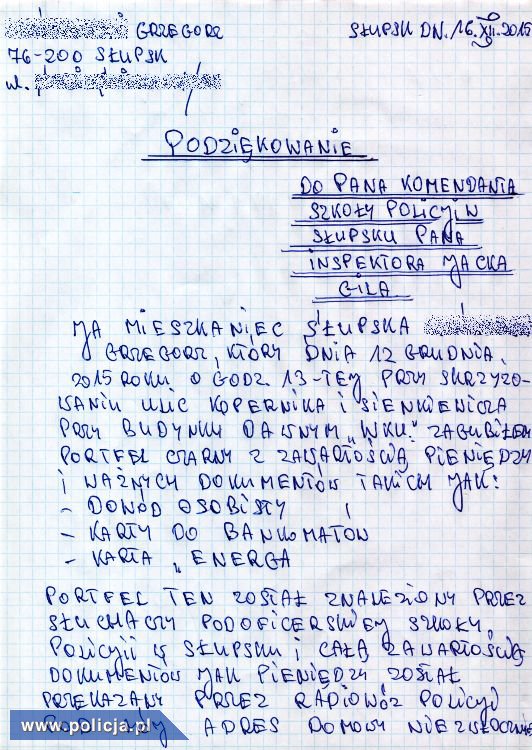 GRZEGORZ
SŁUPSK DN. 16.XII.2015
76-200 SŁUPSK
ul.
PODZIĘKOWANIE
DO PANA KOMENDANTA
SZKOŁY POLICYJI W
SŁUPSKU PANA
INSPEKTORA JACKA
GILA
JA MIESZKANIEC SŁUPSKA
GRZEGORZ, KTÓRY DNIA 12 GRUDNIA
2015 ROKU O GODZ. 13-TEJ PRZY SKRZYŻO-
WANIU ULIC KOPERNIKA I SIENKIEWICZA
PRZY BUDYNKU DAWNYM „WKU." ZAGUBIŁEM
PORTFEL CZARNY Z ZAWARTOŚCIĄ PIENIĘDZY
I WAŻNYCH DOKUMENTÓW TAKICH JAK:
- DOWÓD OSOBISTY
- KARTY DO BANKOMATÓW
- KARTA „ENERGA
PORTFEL TEN ZOSTAŁ ZNALEZIONY PRZEZ
SŁUCHACZY PODOFICERSKIEJ SZKOŁY
POLICYJI W SŁUPSKU I CAŁĄ ZAWARTOŚCIĄ
DOKUMENTÓW JAK PIENIĘDZY ZOSTAŁ
PRZEKAZANY PRZEZ RADIOWÓZ POLICYJ
ADRES DOMOWY NIEZWŁOCZNIE
www.policja.pl